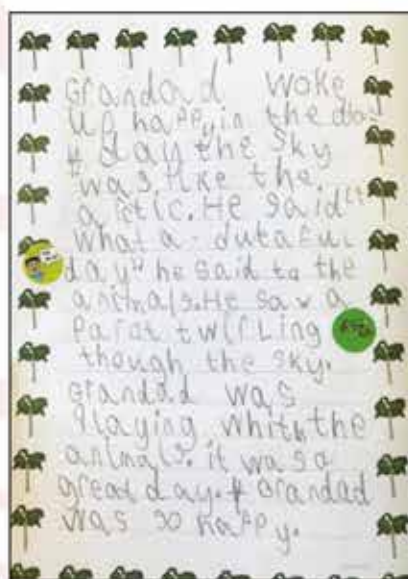 Grandad woke
up happy in the
day the sky
was like the
actic. He said "
what a dutaful
day" he said to the
animals. He saw a
Parot twirLing
though the sky.
Grandad was
Playing whith the
animals. it was a
great day. Grandad
was so happy.